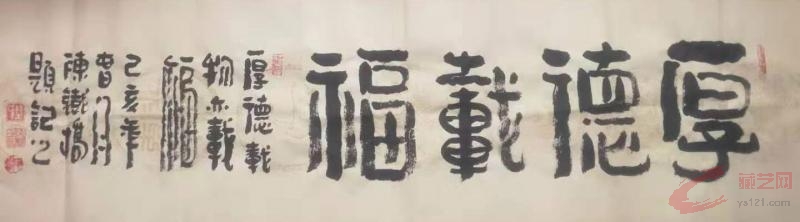 厚德載福
厚德載
物亦載
福
己亥年
春月
陳
題記
藏艺网
ys121.com